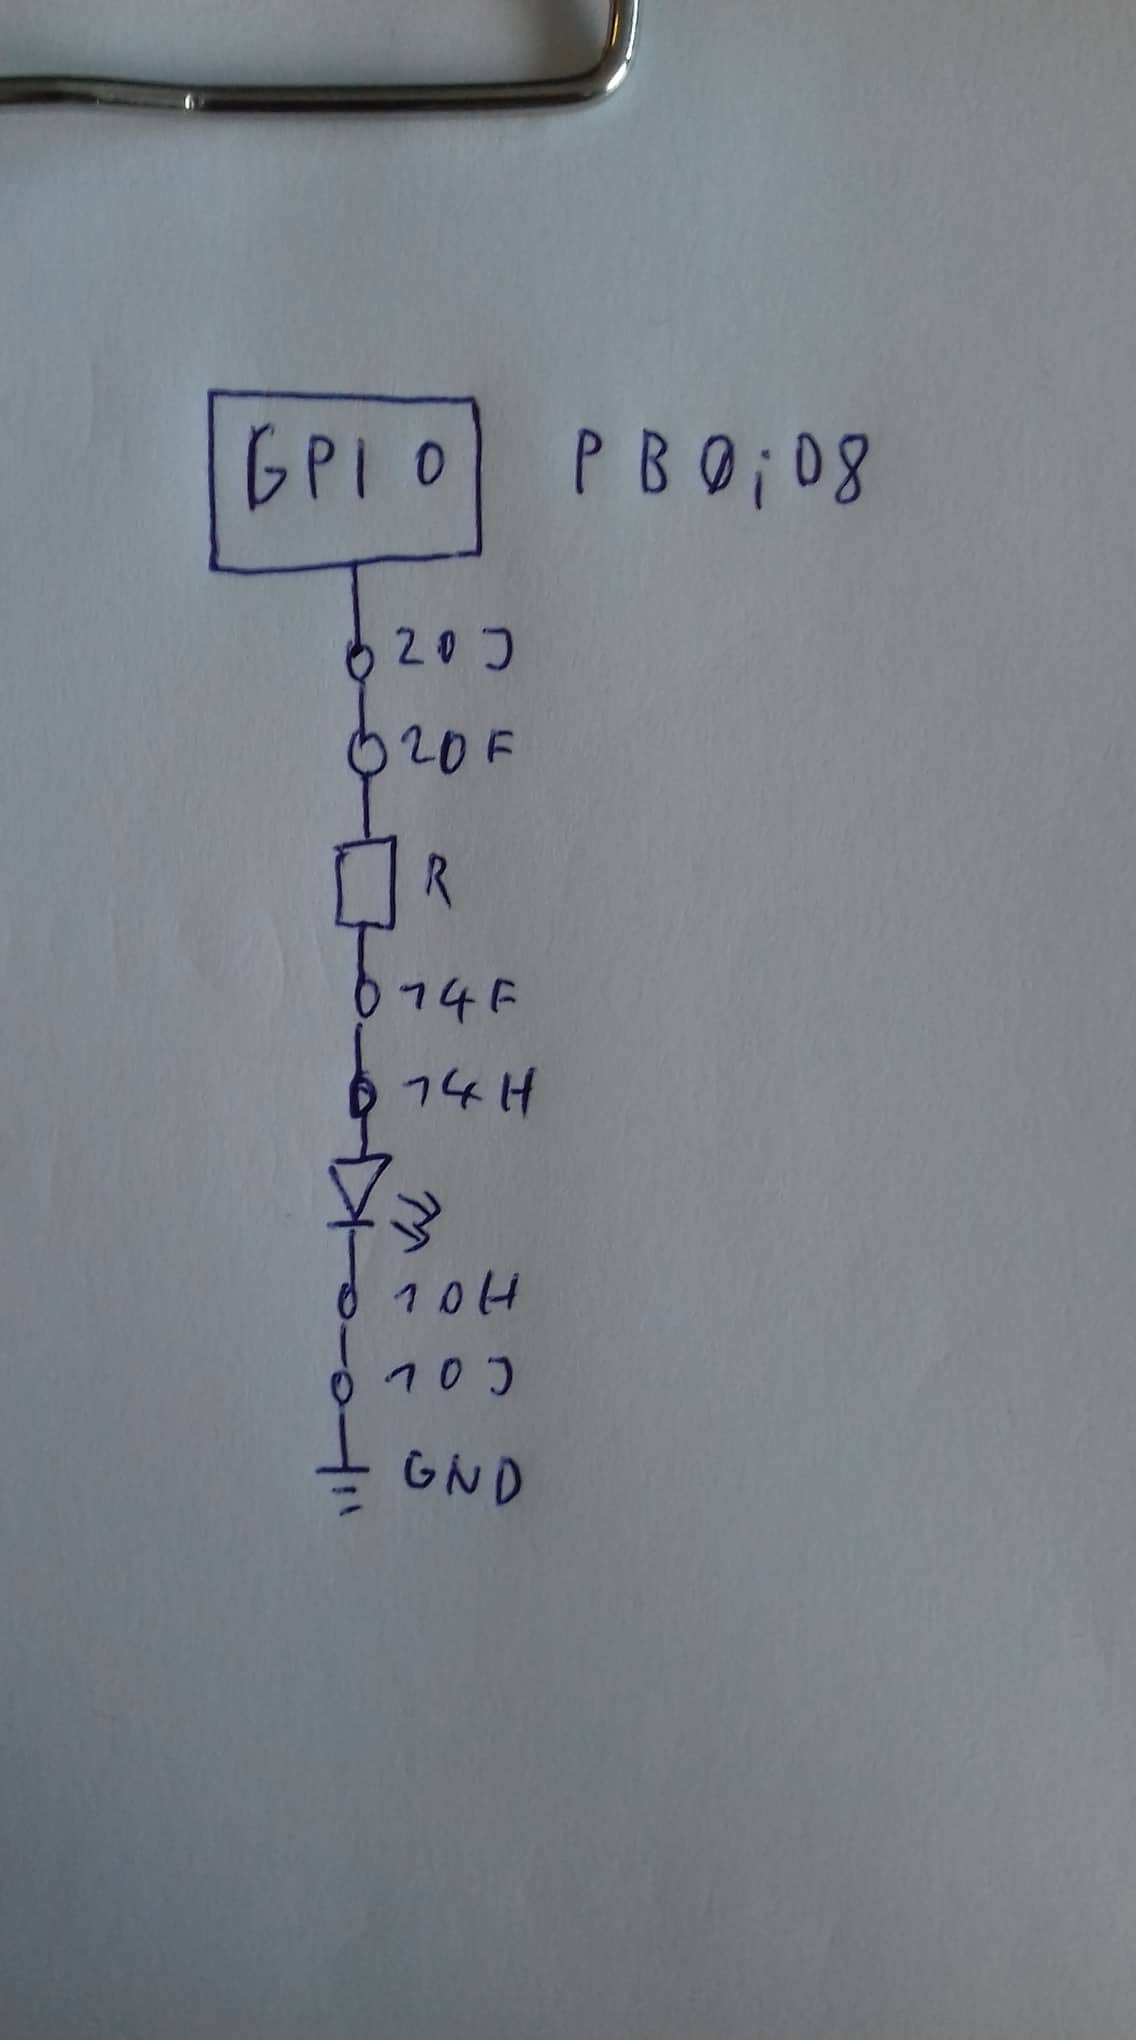 GPIO PB0;D8
20J
20F
R
14F
14H
10H
10J
GND